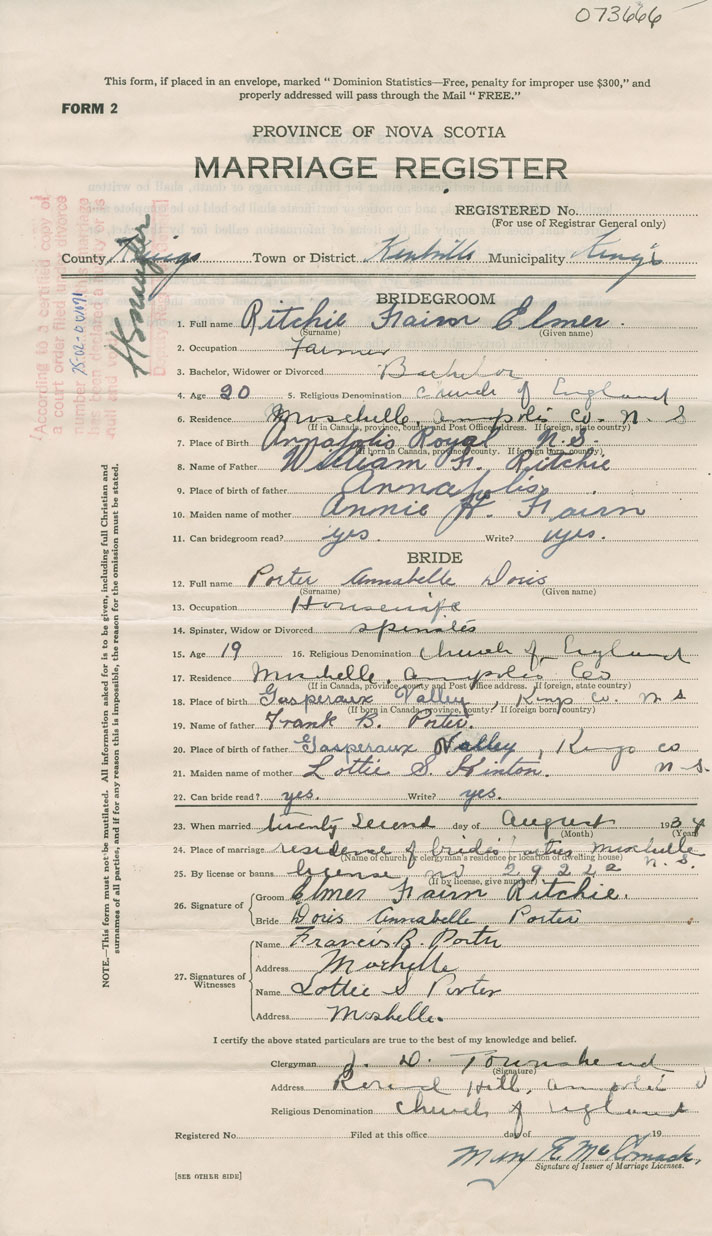 073666
This form, if placed in an envelope, marked "Dominion Statistics—Free, penalty for improper use $300," and
properly addressed will pass through the Mail "FREE."
FORM 2
PROVINCE OF NOVA SCOTIA
MARRIAGE REGISTER
REGISTERED No.
(For use of Registrar General only)
County Kings Town or District Kentville Municipality King's
According to a certified copy of
a court order filed under divorce
number 2502-001091 this marriage
has been declared a nullity or is
null and void
BRIDEGROOM
1. Full name Ritchie Fairn Elmer.
(Surname) (Given name)
2. Occupation Farmer
3. Bachelor, Widower or Divorced Bachelor
4. Age 20 5. Religious Denomination church of England
6. Residence Moschelle Annpolis Co. N. S
(If in Canada, province, county and Post Office address. If foreign, state country)
7. Place of Birth Annapolis Royal N.S.
(If born in Canada, province, county. If foreign born, country)
8. Name of Father William F. Ritchie
9. Place of birth of father Annapolis.
10. Maiden name of mother Annie H. Fairn
11. Can bridegroom read? yes. Write? yes.
BRIDE
12. Full name Porter Annabelle Doris
(Surname) (Given name)
13. Occupation Housewife
14. Spinster, Widow or Divorced
15. Age 19 16. Religious Denomination church of England
17. Residence Moschelle, Annpolis Co
(If in Canada, province, county and Post Office address. If foreign, state country)
18. Place of birth Gasperaux Valley, Kings Co. N S
(If born in Canada, province, county. If foreign born, country)
19. Name of father Frank B. Porter.
20. Place of birth of father Gasperaux Valley, Kings co
21. Maiden name of mother Lottie S. Hinton. N.S.
22. Can bride read? yes. Write? yes.
23. When married twenty Second day of August 1934
(Month) (Year)
24. Place of marriage residence of brides Moschelle
(Name of church or clergyman's residence or location of dwelling house) N. S.
25. By license or banns license, no
(If by license, give number)
26. Signature of
Groom Elmer Fairn Ritchie.
Bride Doris Annabelle Porter
27. Signatures of Witnesses
Name Francis B. Porter
Address Moschelle
Name Lottie S Porter
Address Moshelle.
I certify the above stated particulars are true to the best of my knowledge and belief.
Clergyman J. D. Townshend
(Signature)
Address Round Hill, Annpolis
Religious Denomination church of England
Registered No. Filed at this office day of 19
Mary E. McCormack.
Signature of Issuer of Marriage Licenses.
[SEE OTHER SIDE]
NOTE.—This form must not be mutilated. All information asked for is to be given, including full Christian and
surnames of all parties, and if for any reason this is impossible, the reason for the omission must be stated.